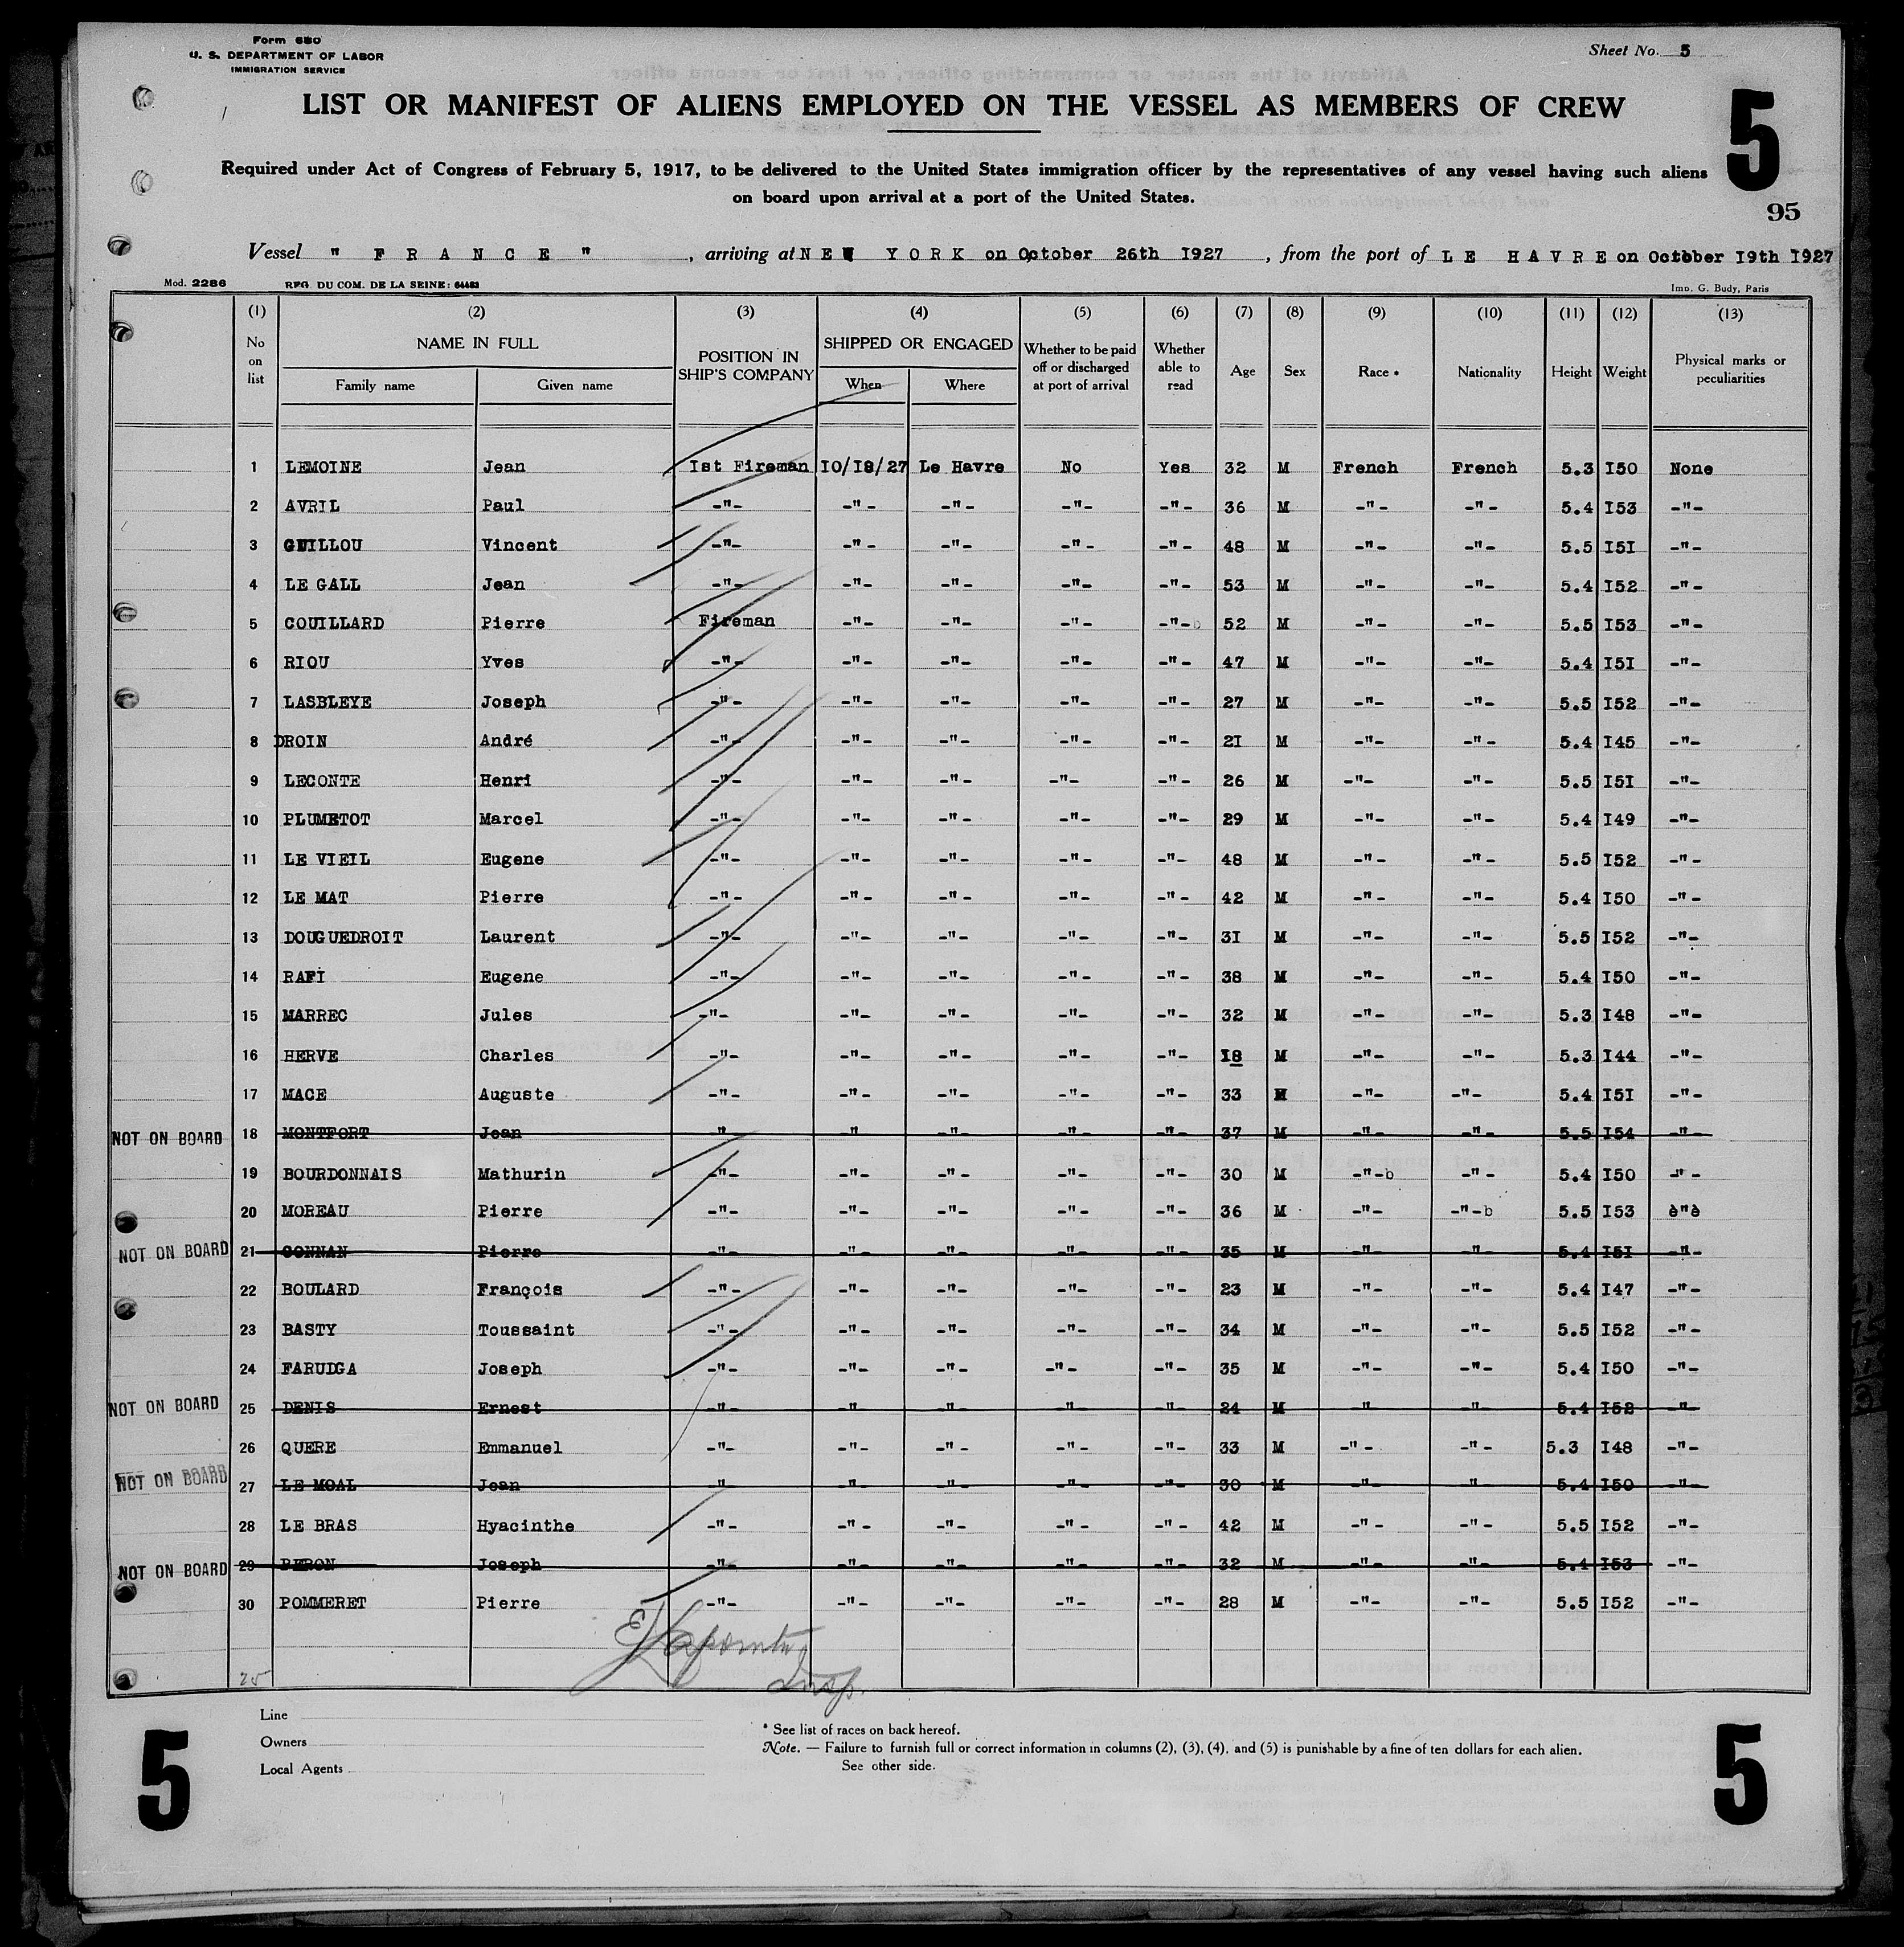 Form 680
U. S. DEPARTMENT OF LABOR
IMMIGRATION SERVICE
Sheet No. 5
LIST OR MANIFEST OF ALIENS EMPLOYED ON THE VESSEL AS MEMBERS OF CREW
5
Required under Act of Congress of February 5, 1917, to be delivered to the United States immigration officer by the representatives of any vessel having such aliens
on board upon arrival at a port of the United States.
95
Vessel " F R A N C E " , arriving at N E W Y O R K on October 26th I927 , from the port of L E H A V R E on October I9th I927
Mod. 2286 RFG. DU COM. DE LA SEINE: 64483 Imp. G. Budy, Paris
(1) (2) (3) (4) (5) (6) (7) (8) (9) (10) (11) (12) (13)
No on list NAME IN FULL Family name Given name POSITION IN SHIP'S COMPANY SHIPPED OR ENGAGED When Where Whether to be paid off or discharged at port of arrival Whether able to read Age Sex Race * Nationality Height Weight Physical marks or peculiarities
1 LEMOINE Jean Ist Fireman IO/I8/27 Le Havre No Yes 32 M French French 5.3 I50 None
2 AVRIL Paul -"- -"- -"- -"- -"- 36 M -"- -"- 5.4 I53 -"-
3 GUILLOU Vincent -"- -"- -"- -"- -"- 48 M -"- -"- 5.5 I5I -"-
4 LE GALL Jean -"- -"- -"- -"- -"- 53 M -"- -"- 5.4 I52 -"-
5 COUILLARD Pierre Fireman -"- -"- -"- -"-b 52 M -"- -"- 5.5 I53 -"-
6 RIOU Yves -"- -"- -"- -"- -"- 47 M -"- -"- 5.4 I5I -"-
7 LASBLEYE Joseph -"- -"- -"- -"- -"- 27 M -"- -"- 5.5 I52 -"-
8 DROIN André -"- -"- -"- -"- -"- 2I M -"- -"- 5.4 I45 -"-
9 LECONTE Henri -"- -"- -"- -"- -"- 26 M -"- -"- 5.5 I5I -"-
10 PLUMETOT Marcel -"- -"- -"- -"- -"- 29 M -"- -"- 5.4 I49 -"-
11 LE VIEIL Eugene -"- -"- -"- -"- -"- 48 M -"- -"- 5.5 I52 -"-
12 LE MAT Pierre -"- -"- -"- -"- -"- 42 M -"- -"- 5.4 I50 -"-
13 DOUGUEDROIT Laurent -"- -"- -"- -"- -"- 3I M -"- -"- 5.5 I52 -"-
14 RAFI Eugene -"- -"- -"- -"- -"- 38 M -"- -"- 5.4 I50 -"-
15 MARREC Jules -"- -"- -"- -"- -"- 32 M -"- -"- 5.3 I48 -"-
16 HERVE Charles -"- -"- -"- -"- -"- I8 M -"- -"- 5.3 I44 -"-
17 MACE Auguste -"- -"- -"- -"- -"- 33 M -"- -"- 5.4 I5I -"-
NOT ON BOARD 18 MONTFORT Jean -"- -"- -"- -"- -"- 37 M -"- -"- 5.5 I54 -"-
19 BOURDONNAIS Mathurin -"- -"- -"- -"- -"- 30 M -"-b -"- 5.4 I50 -"-
20 MOREAU Pierre -"- -"- -"- -"- -"- 36 M -"- -"-b 5.5 I53 è"è
NOT ON BOARD 21 CONNAN Pierre -"- -"- -"- -"- -"- 35 M -"- -"- 5.4 I5I -"-
22 BOULARD François -"- -"- -"- -"- -"- 23 M -"- -"- 5.4 I47 -"-
23 BASTY Toussaint -"- -"- -"- -"- -"- 34 M -"- -"- 5.5 I52 -"-
24 FARUIGA Joseph -"- -"- -"- -"- -"- 35 M -"- -"- 5.4 I50 -"-
NOT ON BOARD 25 DENIS Ernest -"- -"- -"- -"- -"- 24 M -"- -"- 5.4 I52 -"-
26 QUERE Emmanuel -"- -"- -"- -"- -"- 33 M -"- -"- 5.3 I48 -"-
NOT ON BOARD 27 LE MOAL Jean -"- -"- -"- -"- -"- 30 M -"- -"- 5.4 I50 -"-
28 LE BRAS Hyacinthe -"- -"- -"- -"- -"- 42 M -"- -"- 5.5 I52 -"-
NOT ON BOARD 29 BERON Joseph -"- -"- -"- -"- -"- 32 M -"- -"- 5.4 I53 -"-
30 POMMERET Pierre -"- -"- -"- -"- -"- 28 M -"- -"- 5.5 I52 -"-
E Lapointe
Insp.
25
Line
Owners
Local Agents
* See list of races on back hereof.
Note. — Failure to furnish full or correct information in columns (2), (3), (4), and (5) is punishable by a fine of ten dollars for each alien.
See other side.
5
5